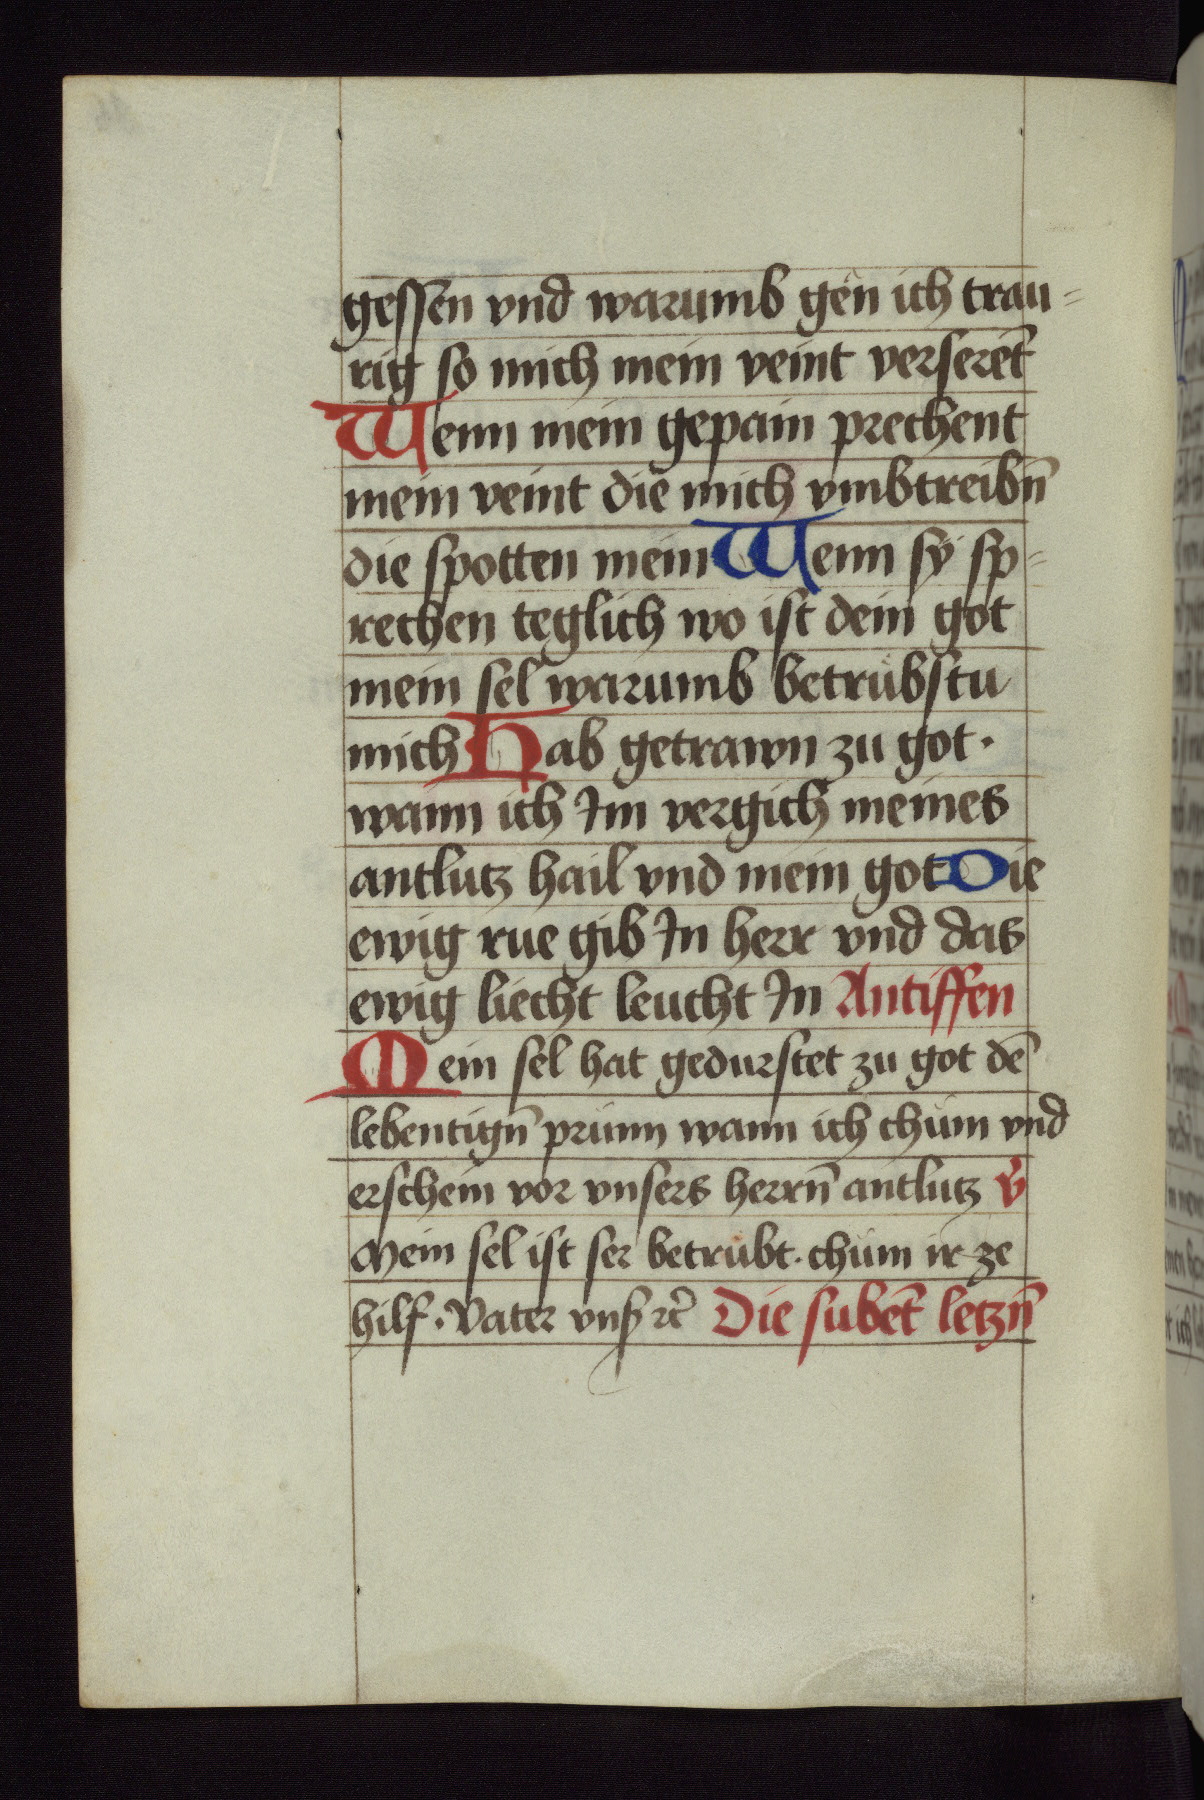 gessen vnd warumb gen ich trau=
rig so mich mein veint verseret̄
Wenn mein gepain prechent
mein veint die mich vmbtreibn̄
die spotten mein Wenn sÿ sp=
rechen teglich wo ist dein got
mein sel warumb betrůbstu
mich Hab getrawn zu got·
wann ich Im vergich meines
antlutz hail vnd mein got Die
ewig rue gib In herr vnd das
ewig liecht leucht In Antiffen
Mein sel hat gedurstet zu got dē
lebentign̄ prunn wann ich chum vnd
erschein vor vnsers herrn̄ antlutz v̄
Mein sel ist ser betrůbt· chum ir ze
hilf· Vater vnß ꝛc̄ Die subet̄ letzn̄